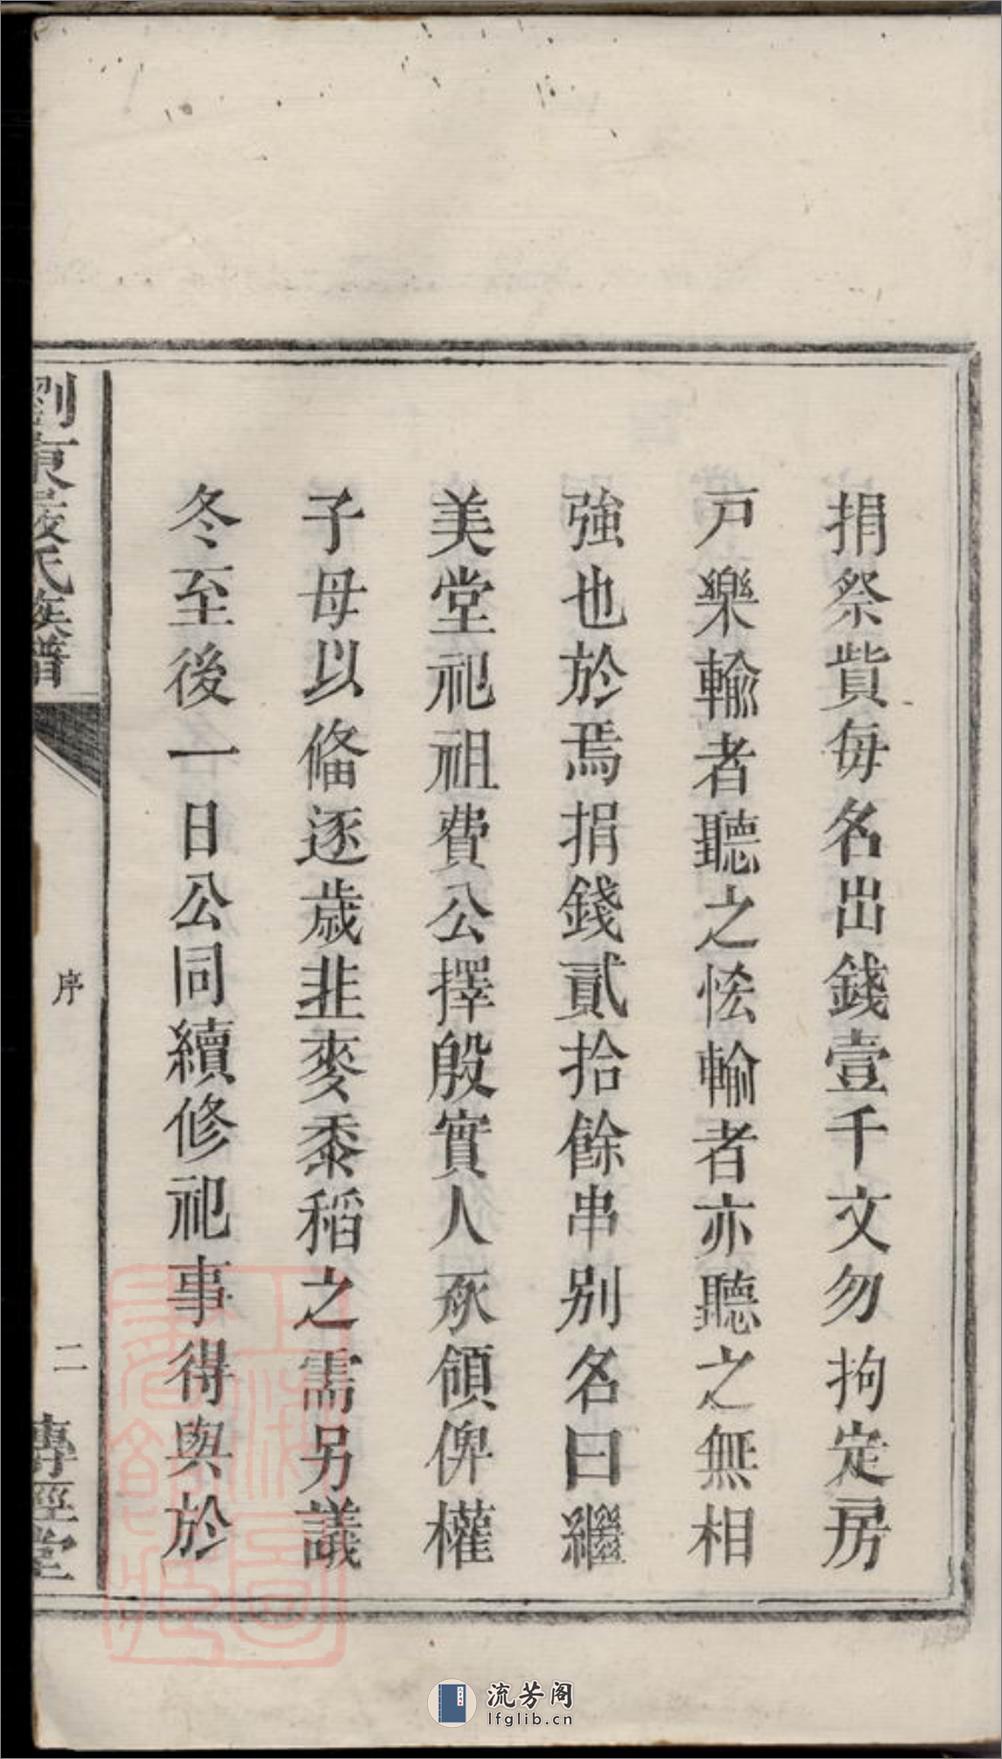 捐祭貲每名出錢壹千文勿拘定房
戸樂輸者聽之恡輸者亦聽之無相
強也於焉捐錢貳拾餘串别名曰繼
美堂祀祖費公擇殷實人承領俾權
子母以俻逐歲韭麥黍稻之需另議
冬至後一日公同續修祀事得與於
劉東嚴氏族譜
序
二
專經堂
流芳阁
lfglib.cn